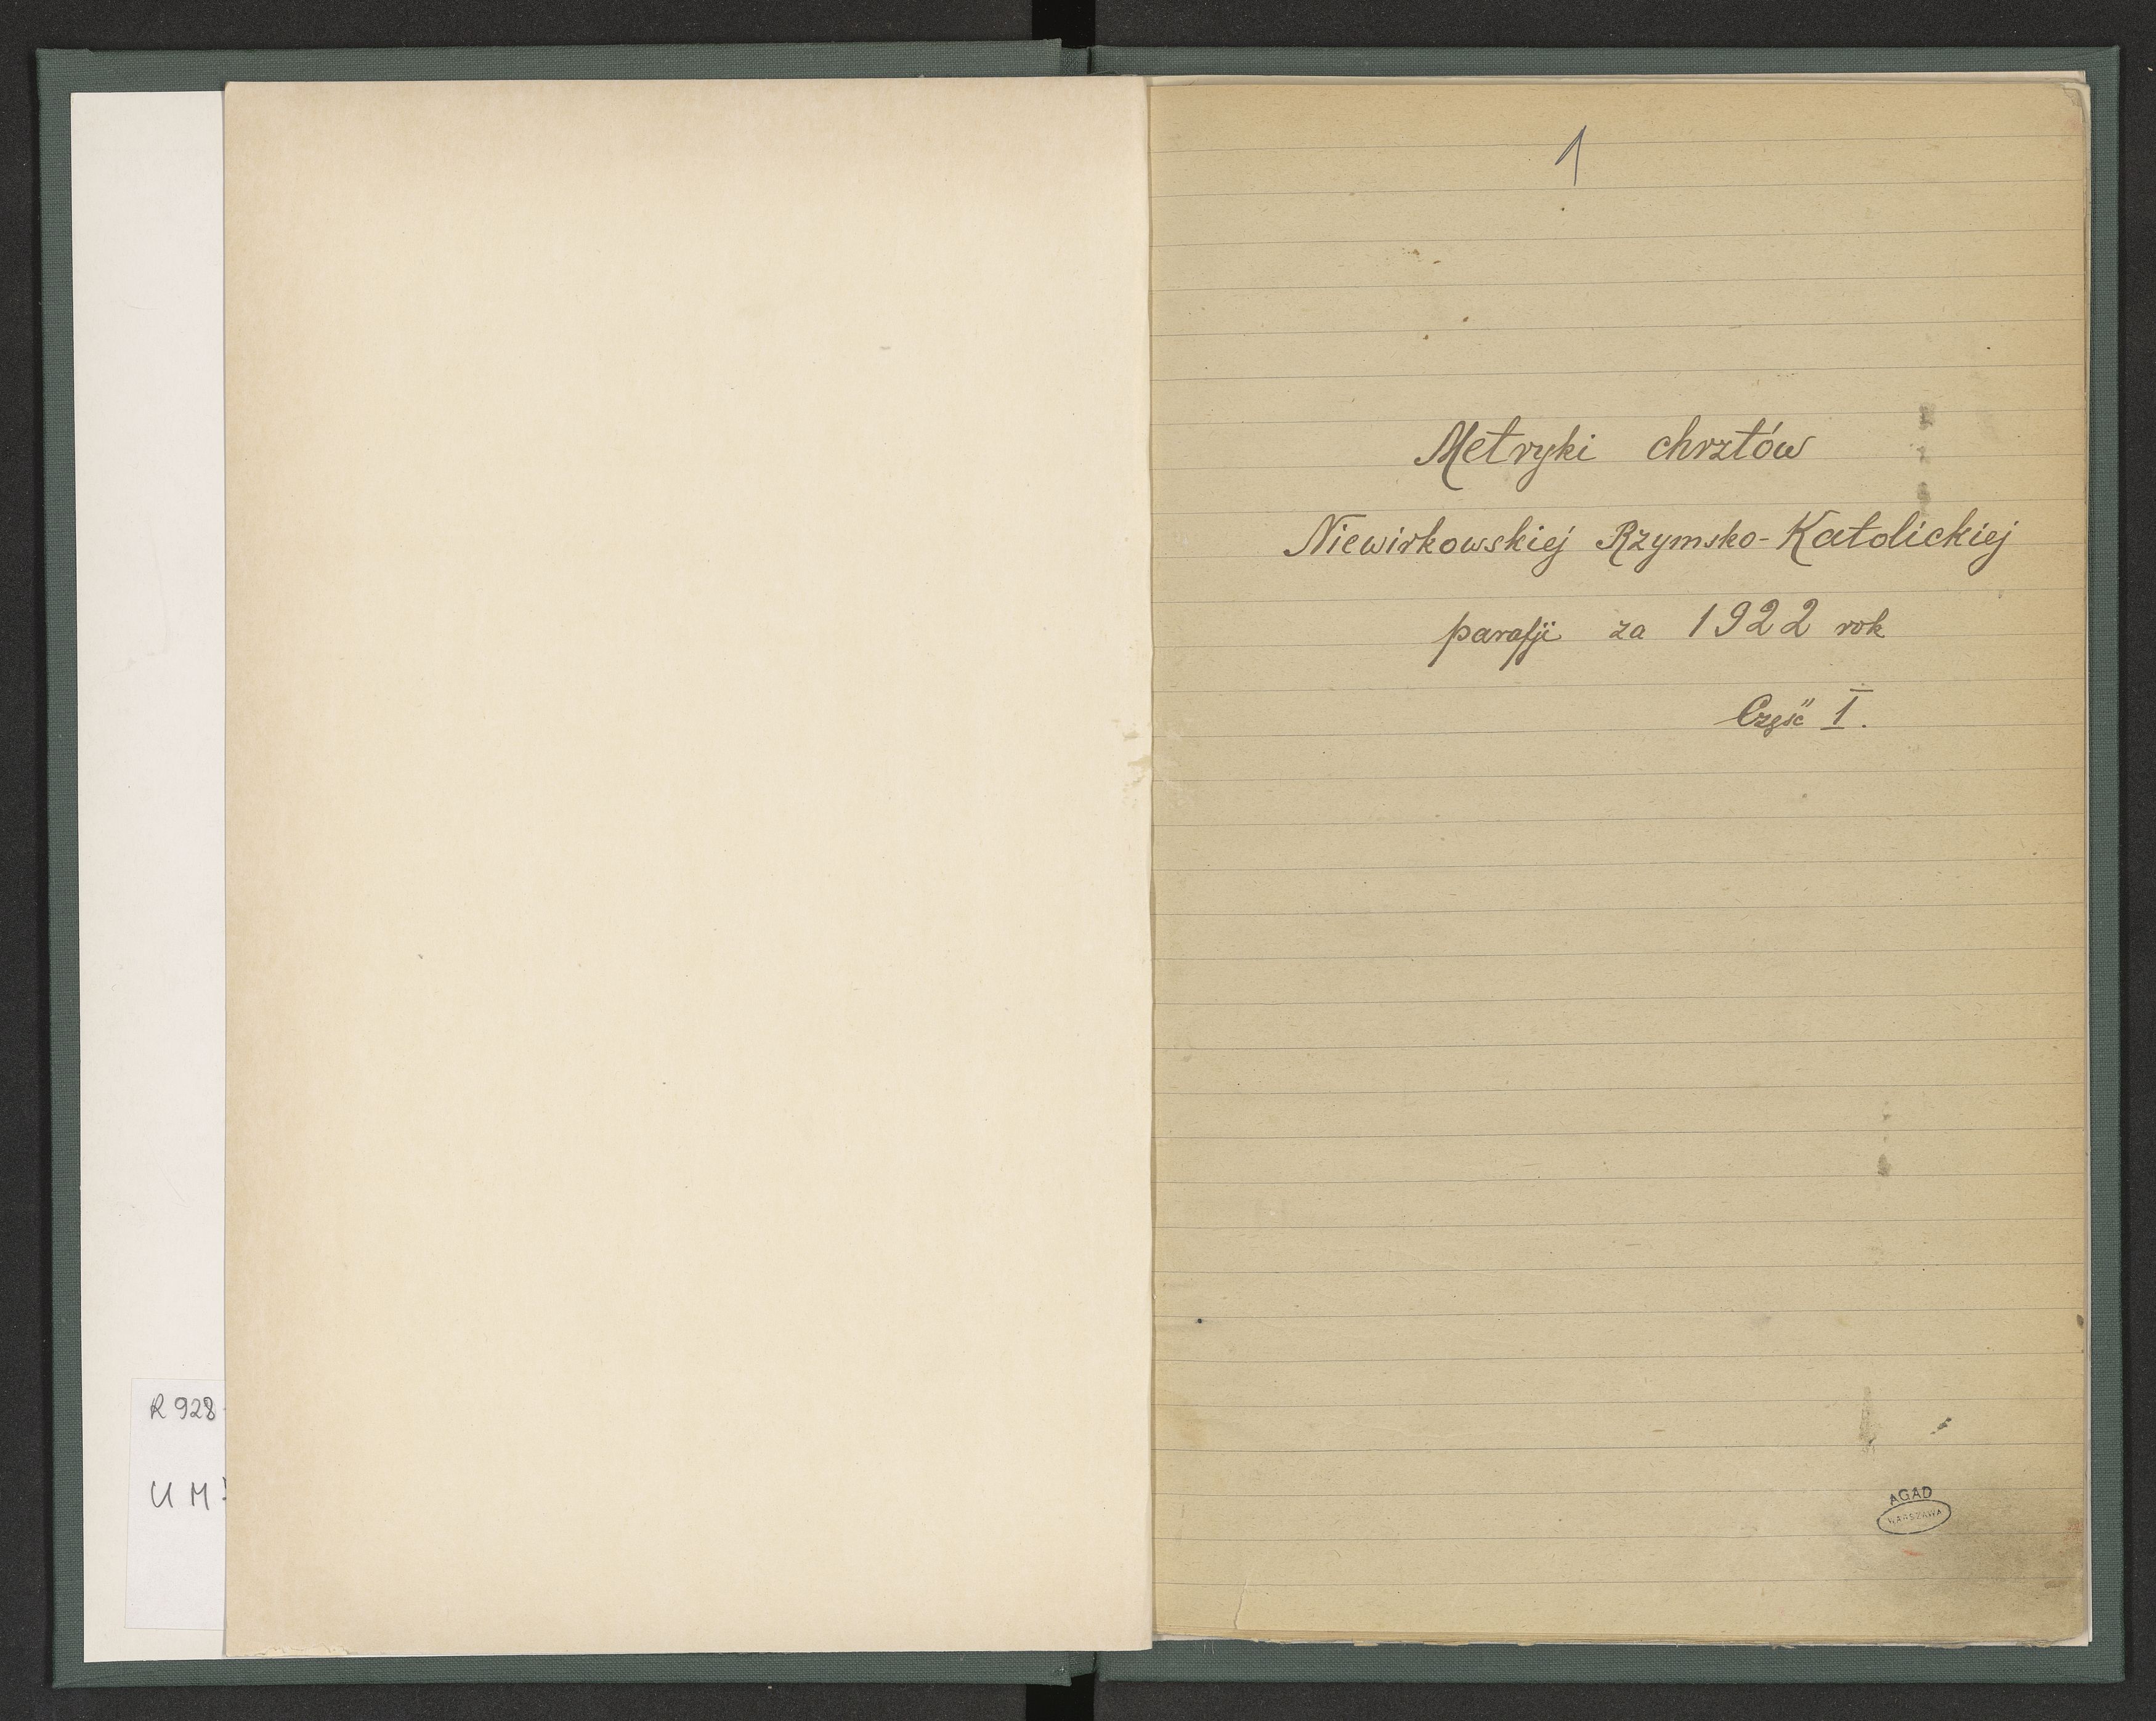 R 928
U M
1
Metryki chrztów
Niewirkowskiej Rzymsko-Katolickiej
parafji za 1922 rok
Część I.
AGAD
WARSZAWA